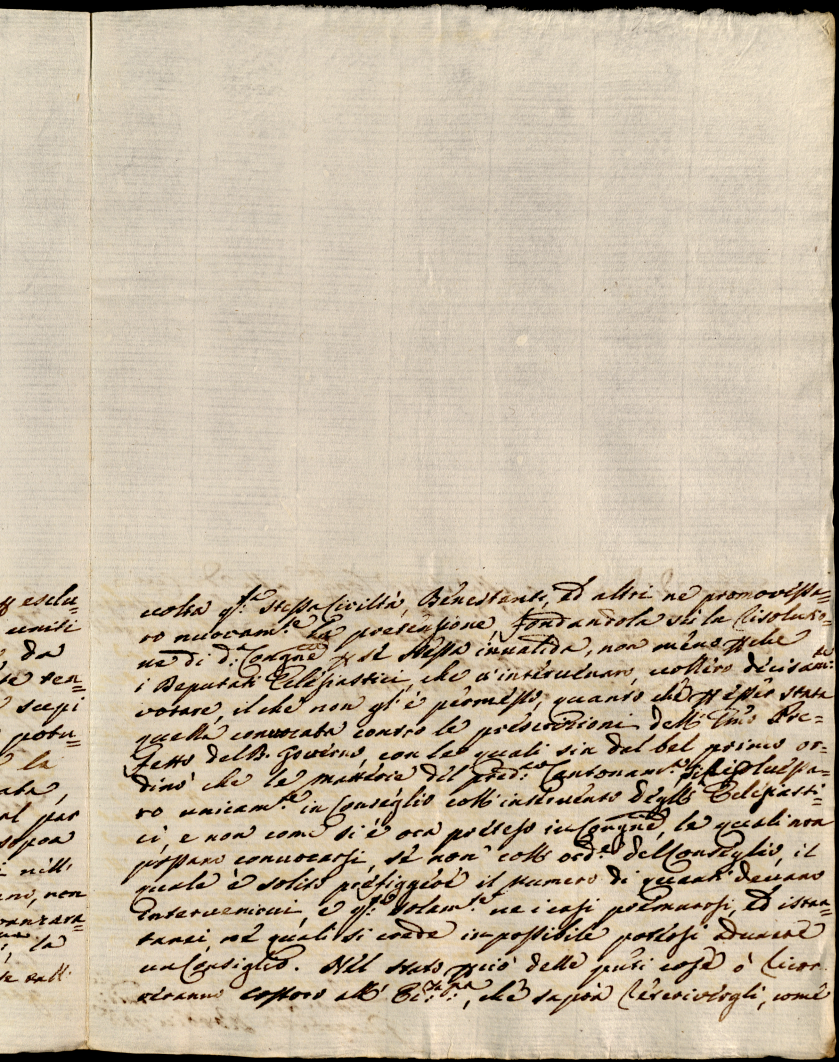 # esclu=
uniti
, da
te ten=
e scepi
potu=
la
ata,
al par
sopra
i nell'
eno, non
ranzara=
la
te rall'
volta q.sta stessa Civiltà, Benestanti, ed altri ne promovessa=
ro nuovam.te la pretenzione fondandola sù la risoluzio=
ne di d.a Congne p sè stessa invalida, non meno pche
i Deputati Eclesiastici, che v'intervenaro, vollero decisam.te
votare, il che non gl'è permesso, quanto che p esser stata
quella convocata contro le prescrizioni dell' Emo Pre=
fetto del B. Governo, con le quali sin dal bel primo or=
dinò che le materie del pred.o Cantonam.to si risolvessa=
ro unicam.te in Conseglio coll'intervento degli Eclesiasti=
ci, e non come si è ora preteso in Congne, le quali non
possano convocarsi, sè non coll ord.e del Conseglio, il
quale è solito prefiggere il numero di quanti devano
intervenirvi, e q.to solam.te ne i casi premurosi, ed istan=
tanei, nè quali si crede impossibile potersi adunare
un Consiglio. Nel stato pciò delle pure cose ò ricor
reranno costoro all' , che saprà rescrivergli, come